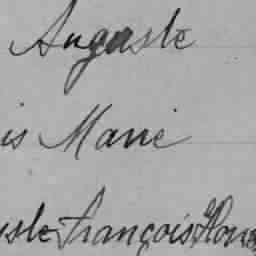 Auguste
is Marie
uste François